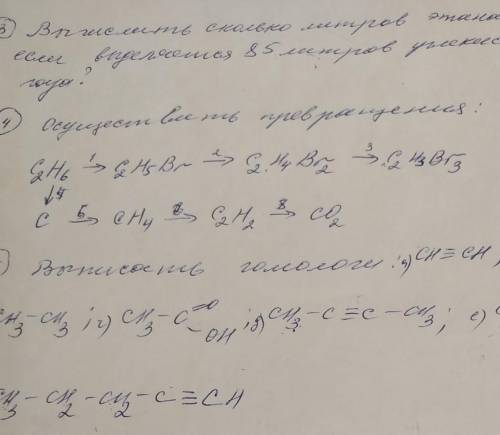 3 Вычислить сколько литров этана
если выделяется 85 литров углекис
газа?
4 Осуществить превращения:
C2H6 1→ C2H5Br 2→ C2H4Br2 3→ C2H3Br3
↓4
C 5→ CH4 6→ C2H2 8→ CO2
Выписать гомологи: а) CH≡CH,
CH3-CH3; г) CH3-C=O-OH; д) CH3-C≡C-CH3; е)
CH3-CH2-CH2-C≡CH